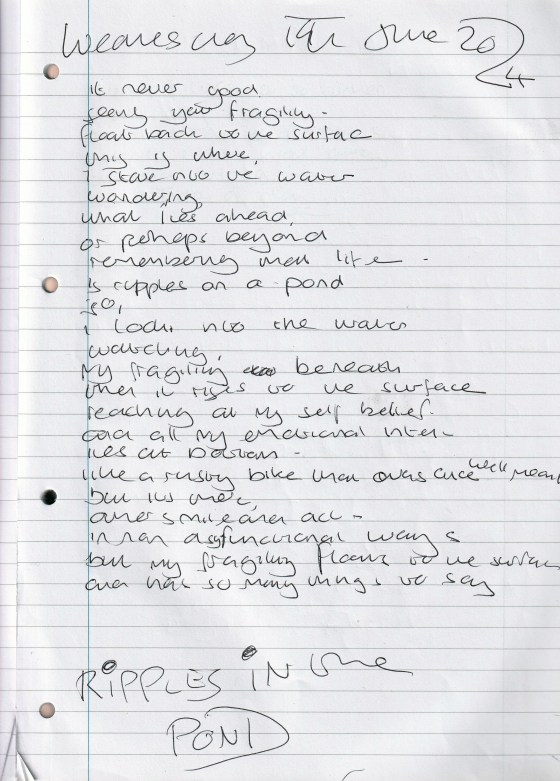 Wednesday 19th June 2024
it never good
seeing your fragility -
float back to the surface
this is where,
I stare into the water
wandering,
what lies ahead,
or perhaps beyond
remembering that life -
is ripples on a pond
so,
I look into the water
watching,
My fragility beneath
then it rises to the surface
reaching at my self belief.
and all my emotional inter-
lies at bottom -
like a rusty bike that was once well meant
but its there,
and smile and all -
in dysfunctional ways
but my fragility floats to the surface
and has so many things to say
RIPPLES IN the
POND